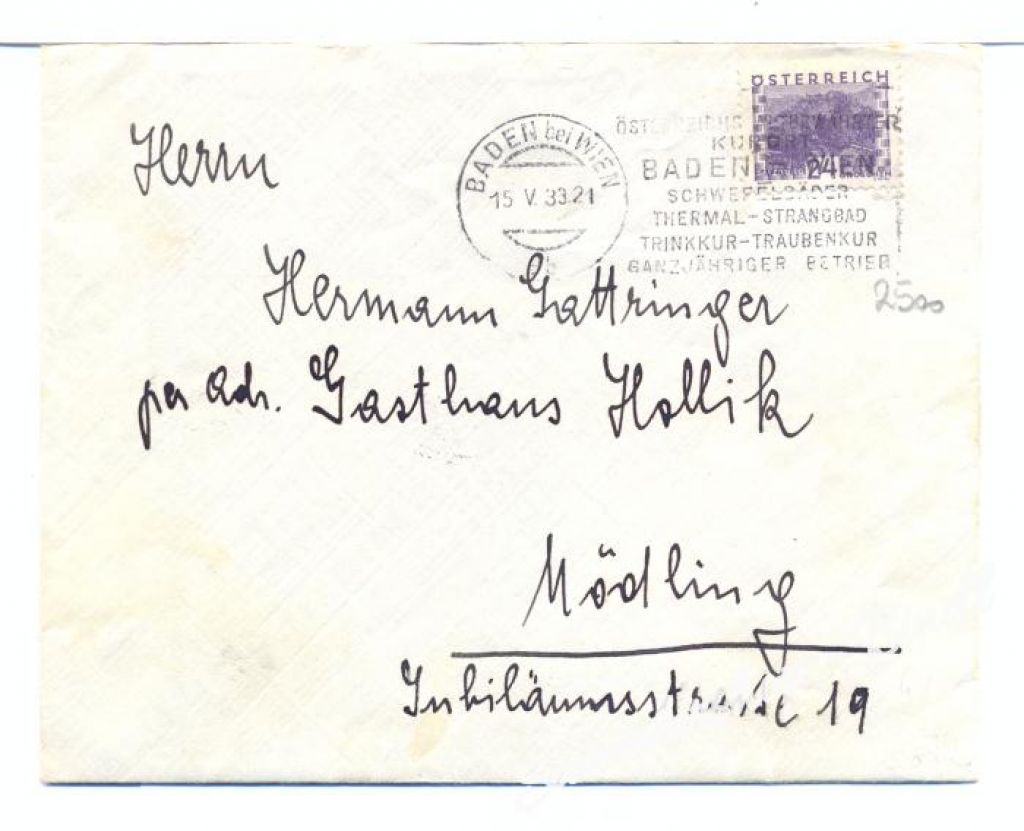 ÖSTERREICH
24
BADEN bei WIEN
15 V. 33.21
b
KURORT
BADEN
SCHWEFELBÄDER
THERMAL-STRANDBAD
TRINKKUR-TRAUBENKUR
GANZJÄHRIGER BETRIEB
Herrn
Hermann Gattringer
per Adr. Gasthaus Hollik
Mödling
Jubiläumsstraße 19